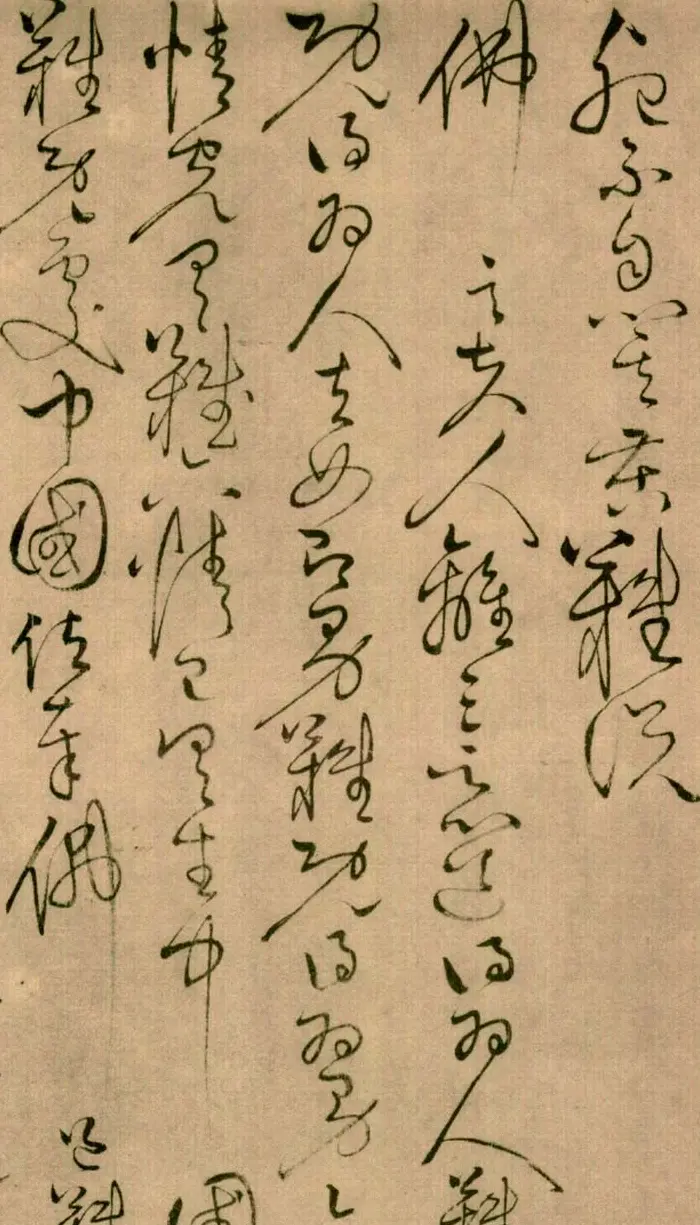 不自其難說
佛言夫人離三惡道得為人難
既得為人去女即男難既得為男
情完具難六情已具生中國
難既處中國值奉佛道難